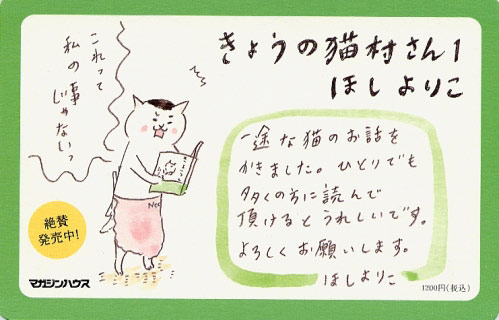 きょうの猫村さん1
ほしよりこ
これって
私の事
じゃないっ
一途な猫のお話を
かきました。ひとりでも
多くの方に読んで
頂けるとうれしいです。
よろしくお願いします。
ほしよりこ
絶賛
発売中!
マガジンハウス
1200円(税込)